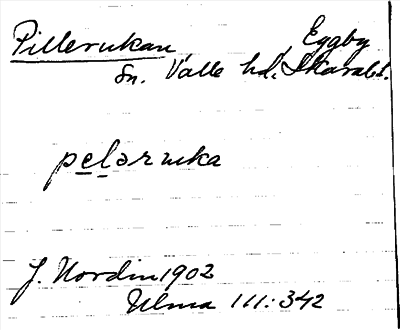 Pillerukan, Eggby
sn. Valle hd, Skarab.
peləruka
J. Nordin 1902
Ulma 111:342